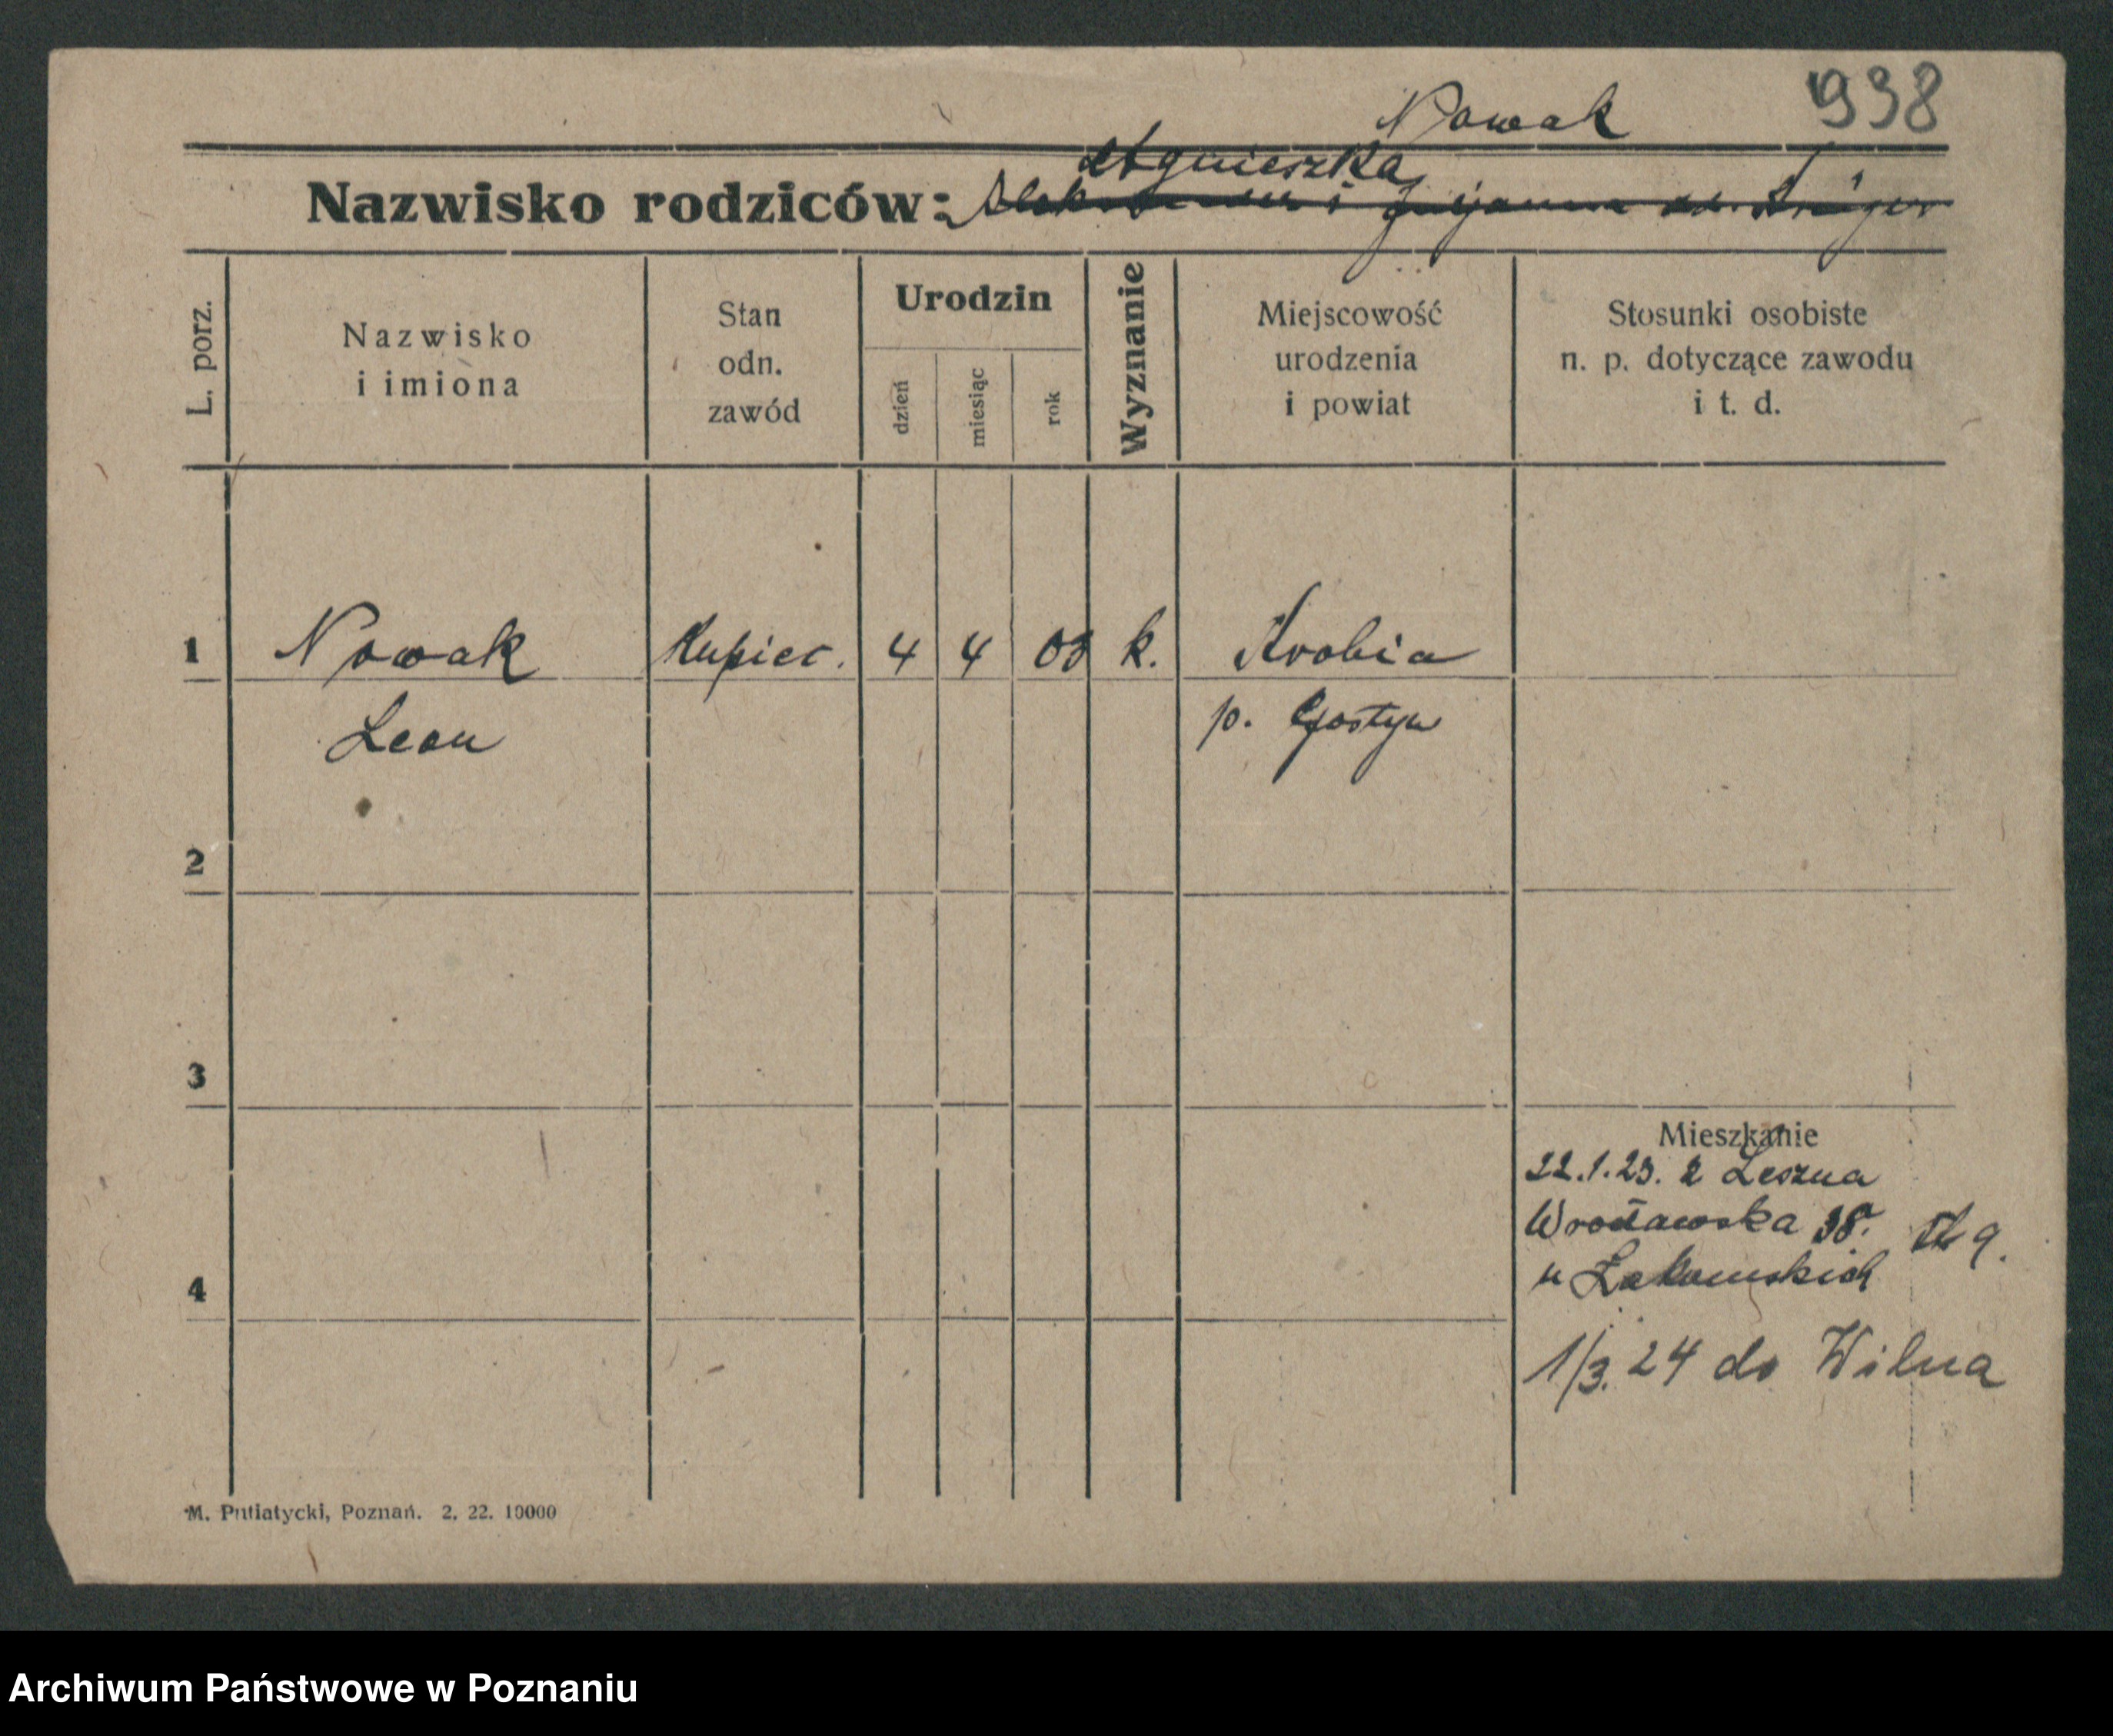 938
Nowak
Agnieszka
Nazwisko rodziców:
L. porz.
Nazwisko
i imiona
Stan
odn.
zawód
Urodzin
dzień
miesiąc
rok
Wyznanie
Miejscowość
urodzenia
i powiat
Stosunki osobiste
n. p. dotyczące zawodu
i t. d.
1 Nowak Kupiec. 4 4 03 k. Krobia
Leon p. Gostyn
2
3
Mieszkanie
22.1.23. z Leszna
Wrocławska 38.
4
u
1/3. 24 do Wilna
M. Putiatycki, Poznań. 2. 22. 10000
Archiwum Państwowe w Poznaniu